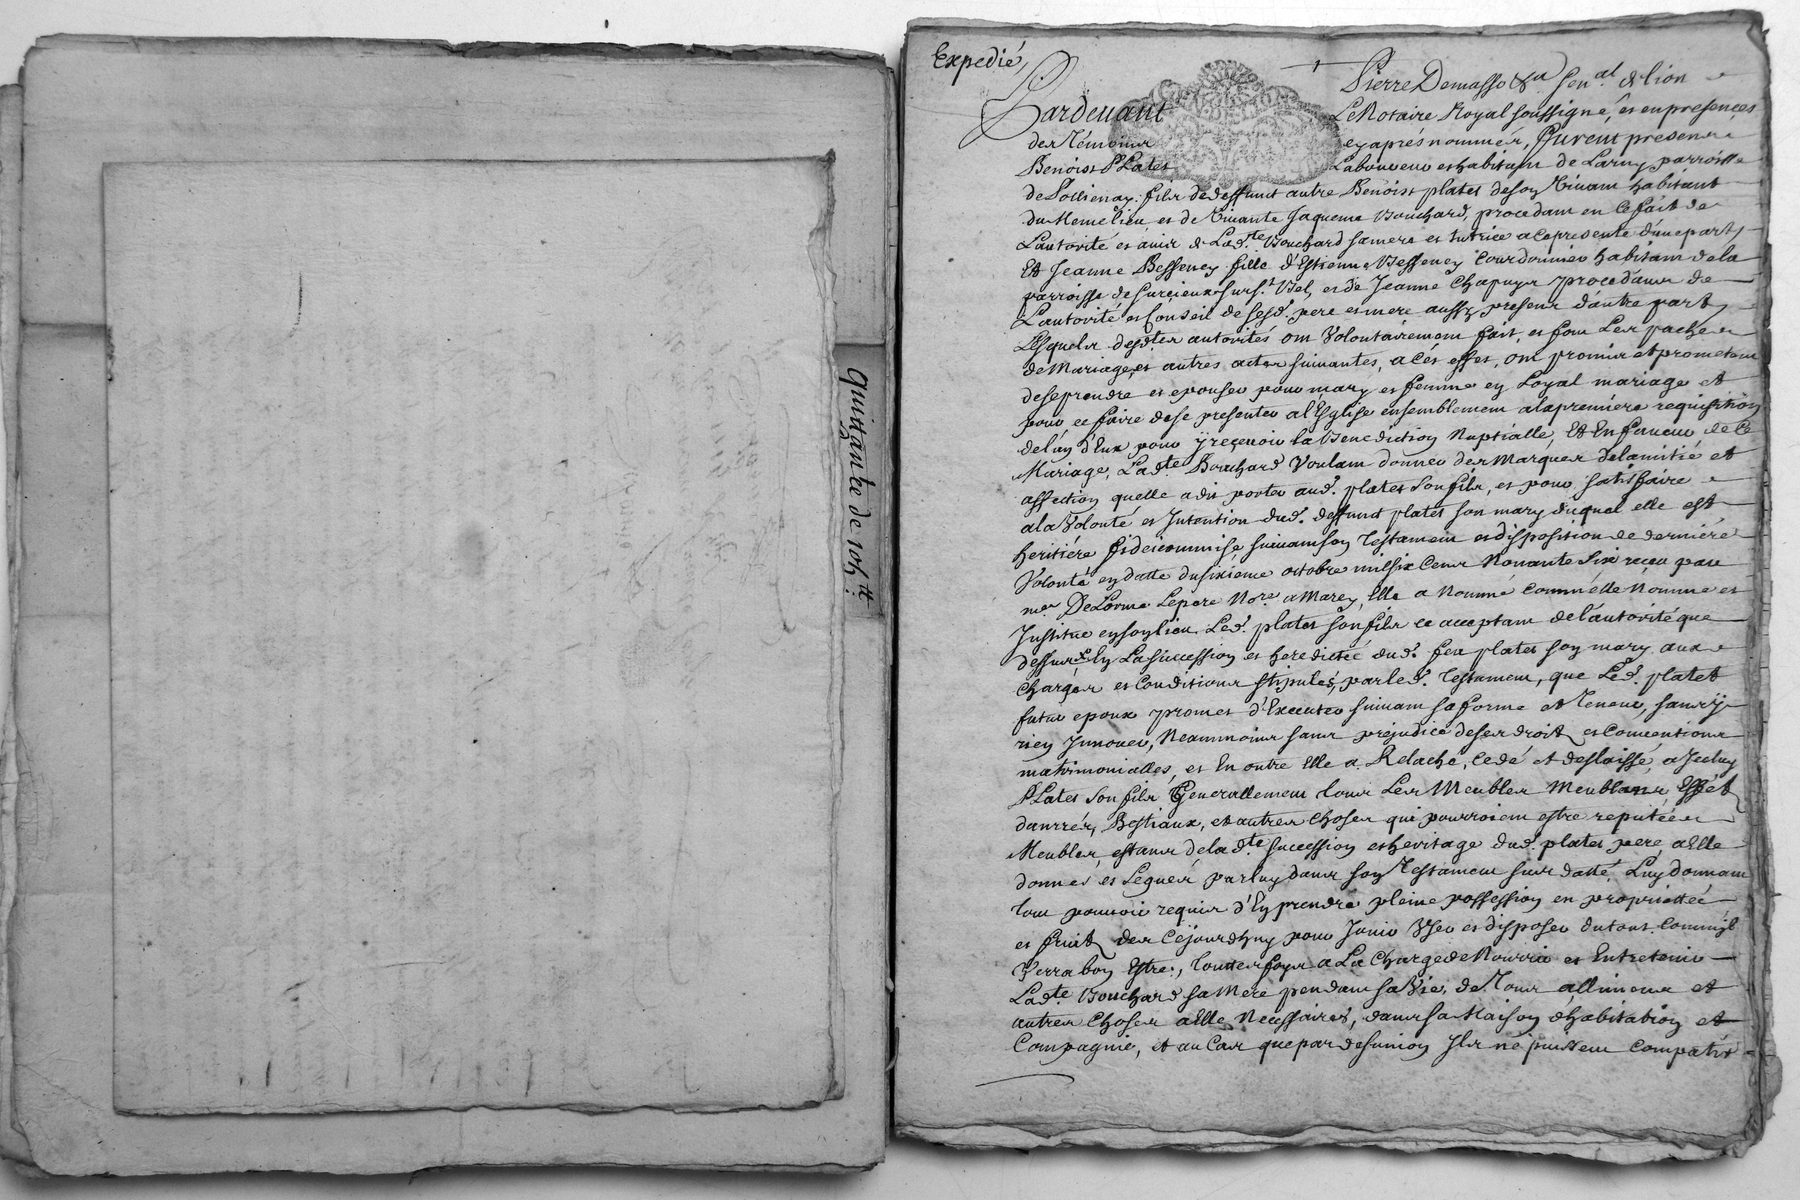 Quittance de 10h tt
Expedié
Pierre Demasso Gen.al de lion
Pardeuant Le Notaire Royal soussigné, et en presences
des Témoins cy après nommés, furent presens
Benoist Plates Laboureur et habitant de Larny parroisse
de Sollienay fils de deffunct autre Benoist plates de son viuant habitant
du Meme lieu, et de viuante Jaqueme Bouchard, procedant en ce fait de
L'autorité et auis de Lad.te Bouchard sa mere et tutrice a ce presente d'une part,
Et Jeanne Besseney fille d'Estienne Besseney Courdonnier habitant de la
parroisse de Surcieux sur s.t Bel, et de Jeanne Chapuys procedans de
L'autorité et Conseil de sesd. pere et mere aussy presens d'autre part,
Lesquels desd.tes autorités ont volontairement fait, et font Les paches
de Mariage, et autres actes suiuantes, a ces effets, ont promis et prometent
de se prendre et epouser pour mary et femme en Loyal mariage et
pour ce faire de se presenter a l'Esglise ensemblement a la premiere requisition
de l'un d'Eux pour y reçeuoir la Benediction Nuptialle, Et En faueur de Ce
Mariage, Lad.te Bouchard Voulant donner des Marques de l'amitié et
affection quelle a dit porter aud. plates son fils, et pour satisfaire
a la Volonté et Intention dud. deffunct plates son mary duquel elle est
heritiére fideicommise, suiuant son Testament et disposition de derniére
Volonté en datte du sixieme octobre mil six Cens Nonante Six receu par
m.e DeLorme Le pere No.re a Marey, Elle a Nommé comm'elle Nomme et
Institue en son lieu Led. plates son fils ce acceptant de l'autorité que
dessus En La succession et heredictée dud. feu plates son mary aux
Charges et Conditions stipulés, par led. Testament, que Led. plates
futur epoux promet d'Executer suiuant sa forme et Teneur, sans y
rien Innouer, Neanmoins sans préjudice de ses droit et Conuentions
matrimonialles, et En outre Elle a Relaché, cedé et deslaissé, a Iceluy
Plates son fils Generallement tous Les Meubles Meublans, Effét
danrrés, Bestiaux, et autres Choses qui pourroient estre reputées
Meubles, estans de lad.te succession et heritage dud. plates pere a Elle
donnes et Legués par luy dans son Testament sus datté, Luy donnant
tout pouuoir requis d'En prendre pleine possession en proprietée
et fruit des Cejourdhuy pour Jouir Vser et disposer du tout Comm'il
Verra bon Estre, Toutes foys a La Charge de Nourrir et Entretenir
Lad.te Bouchard sa Mere pendant sa Vie, de Tous allimens et
autres Choses a Elle Necessaires, dans sa Maison d'habitation et
Compagnie, et au Cas que par desunion Ils ne pussent Compatir